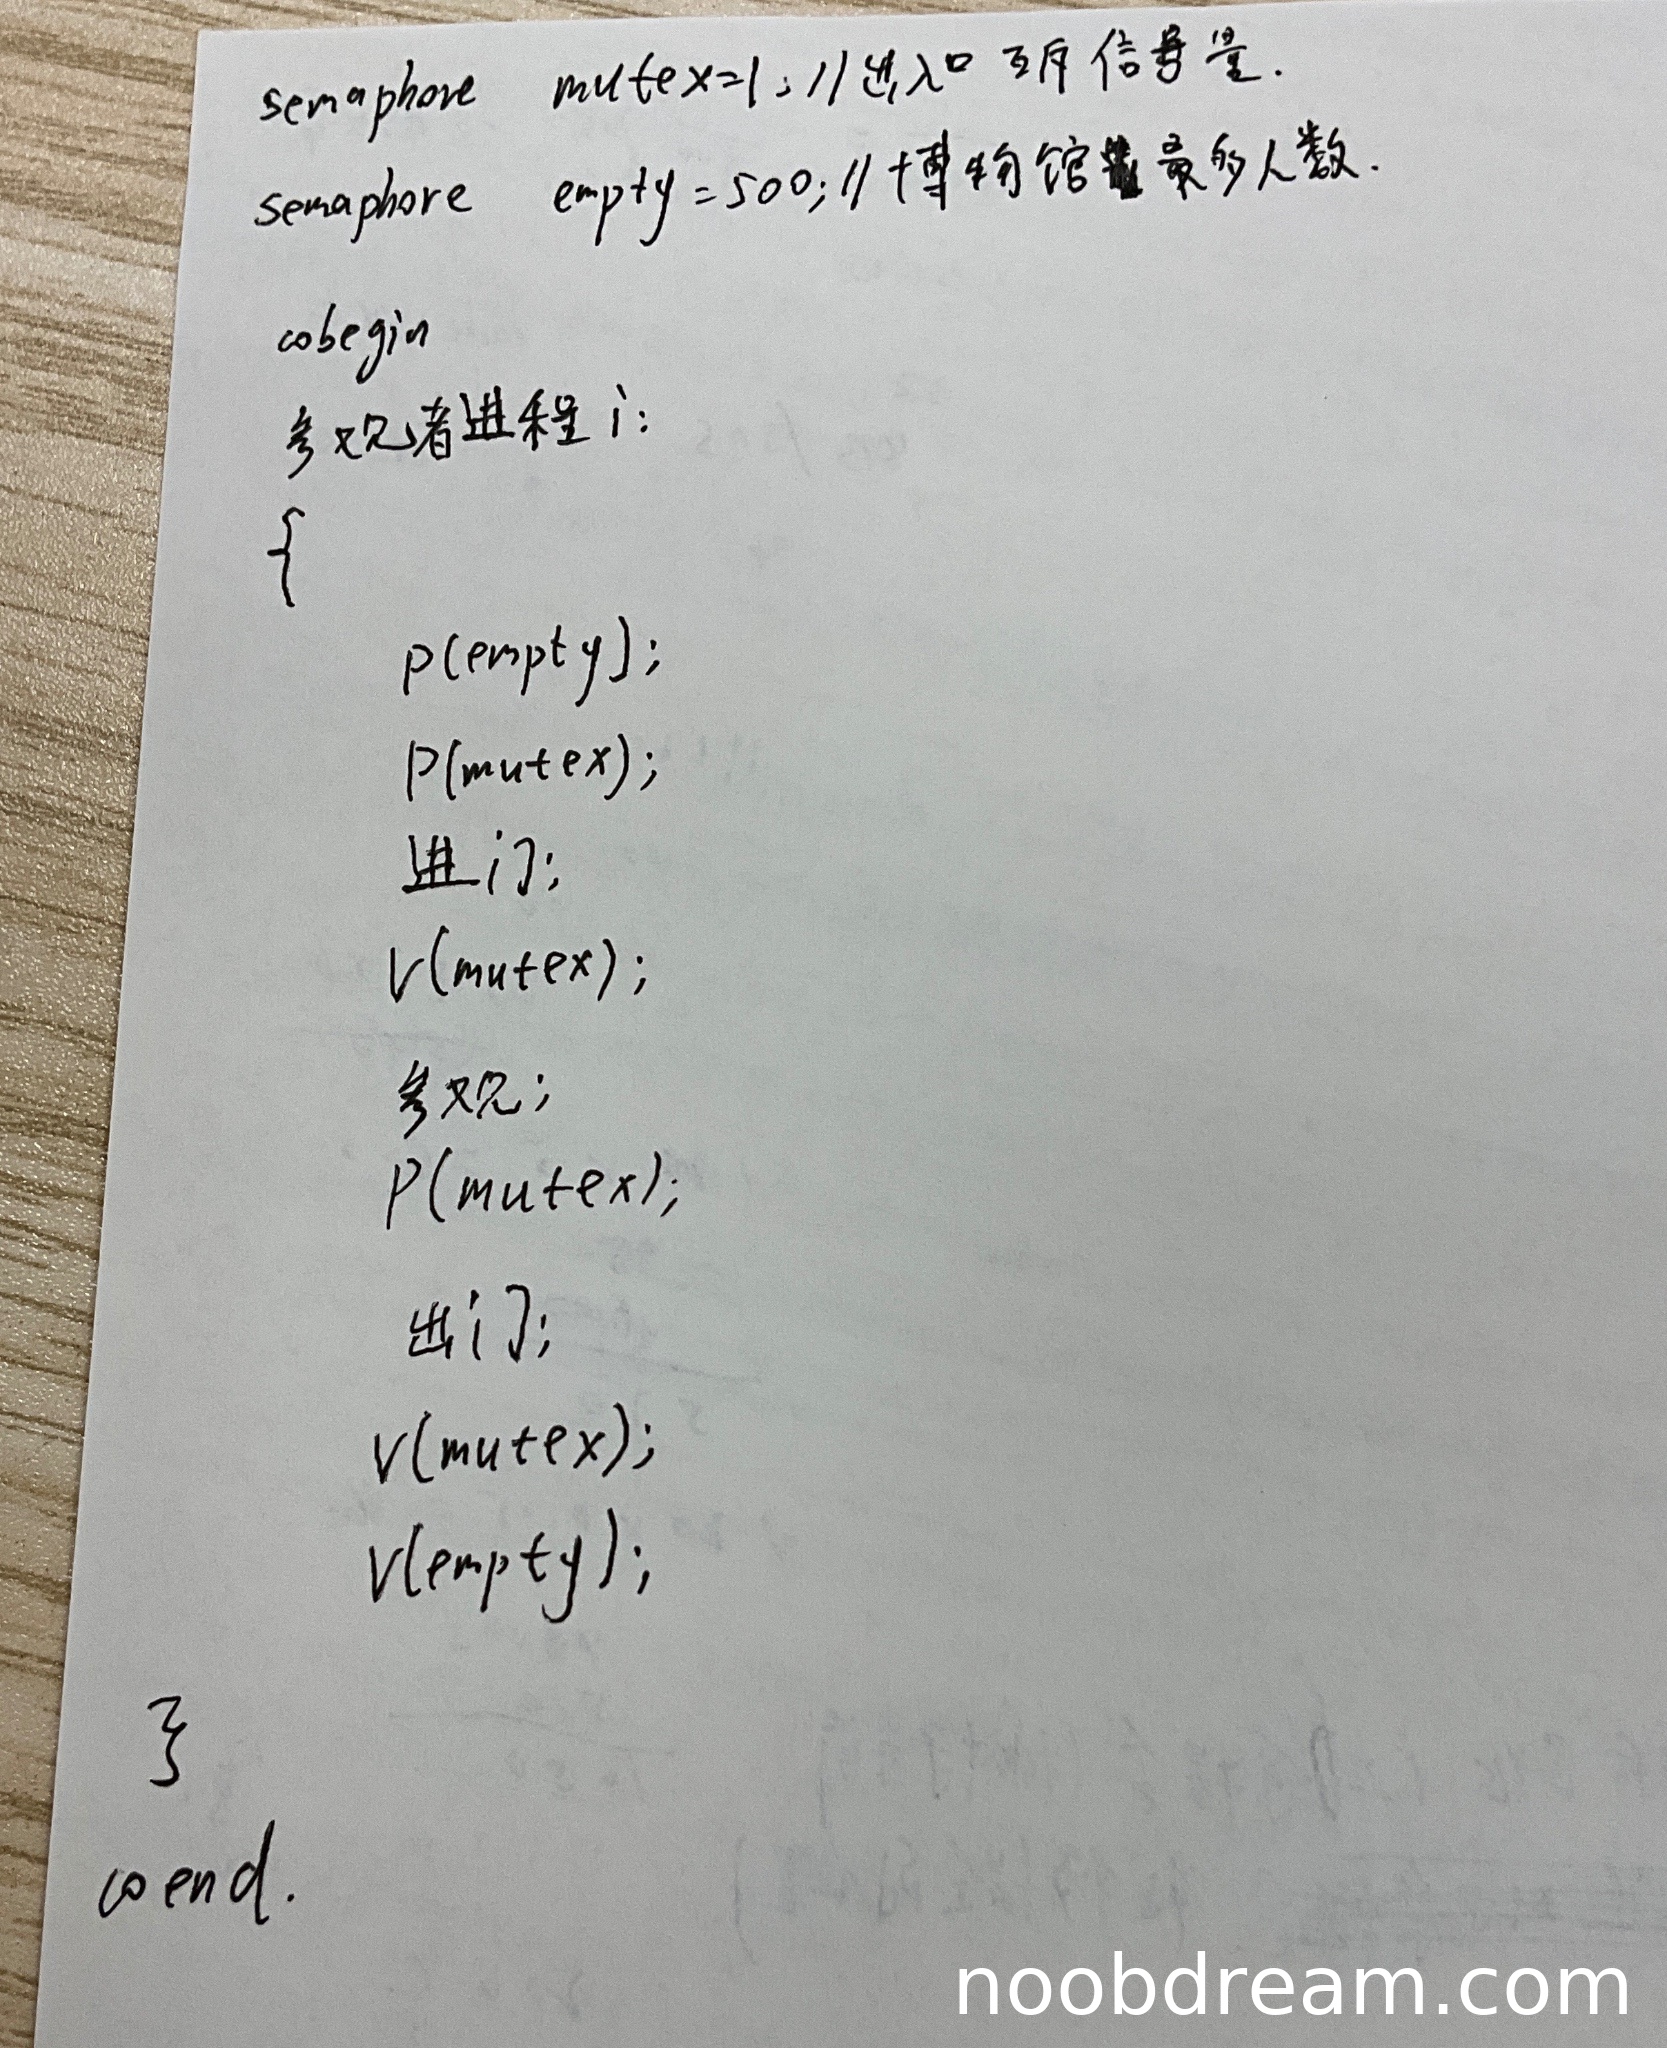 semaphore mutex=1; //进入口互斥信号量.
semaphore empty=500; //博物馆最多人数.
cobegin
参观者进程i:
{
P(empty);
P(mutex);
进门;
V(mutex);
参观;
P(mutex);
出门;
V(mutex);
V(empty);
}
coend.
noobdream.com